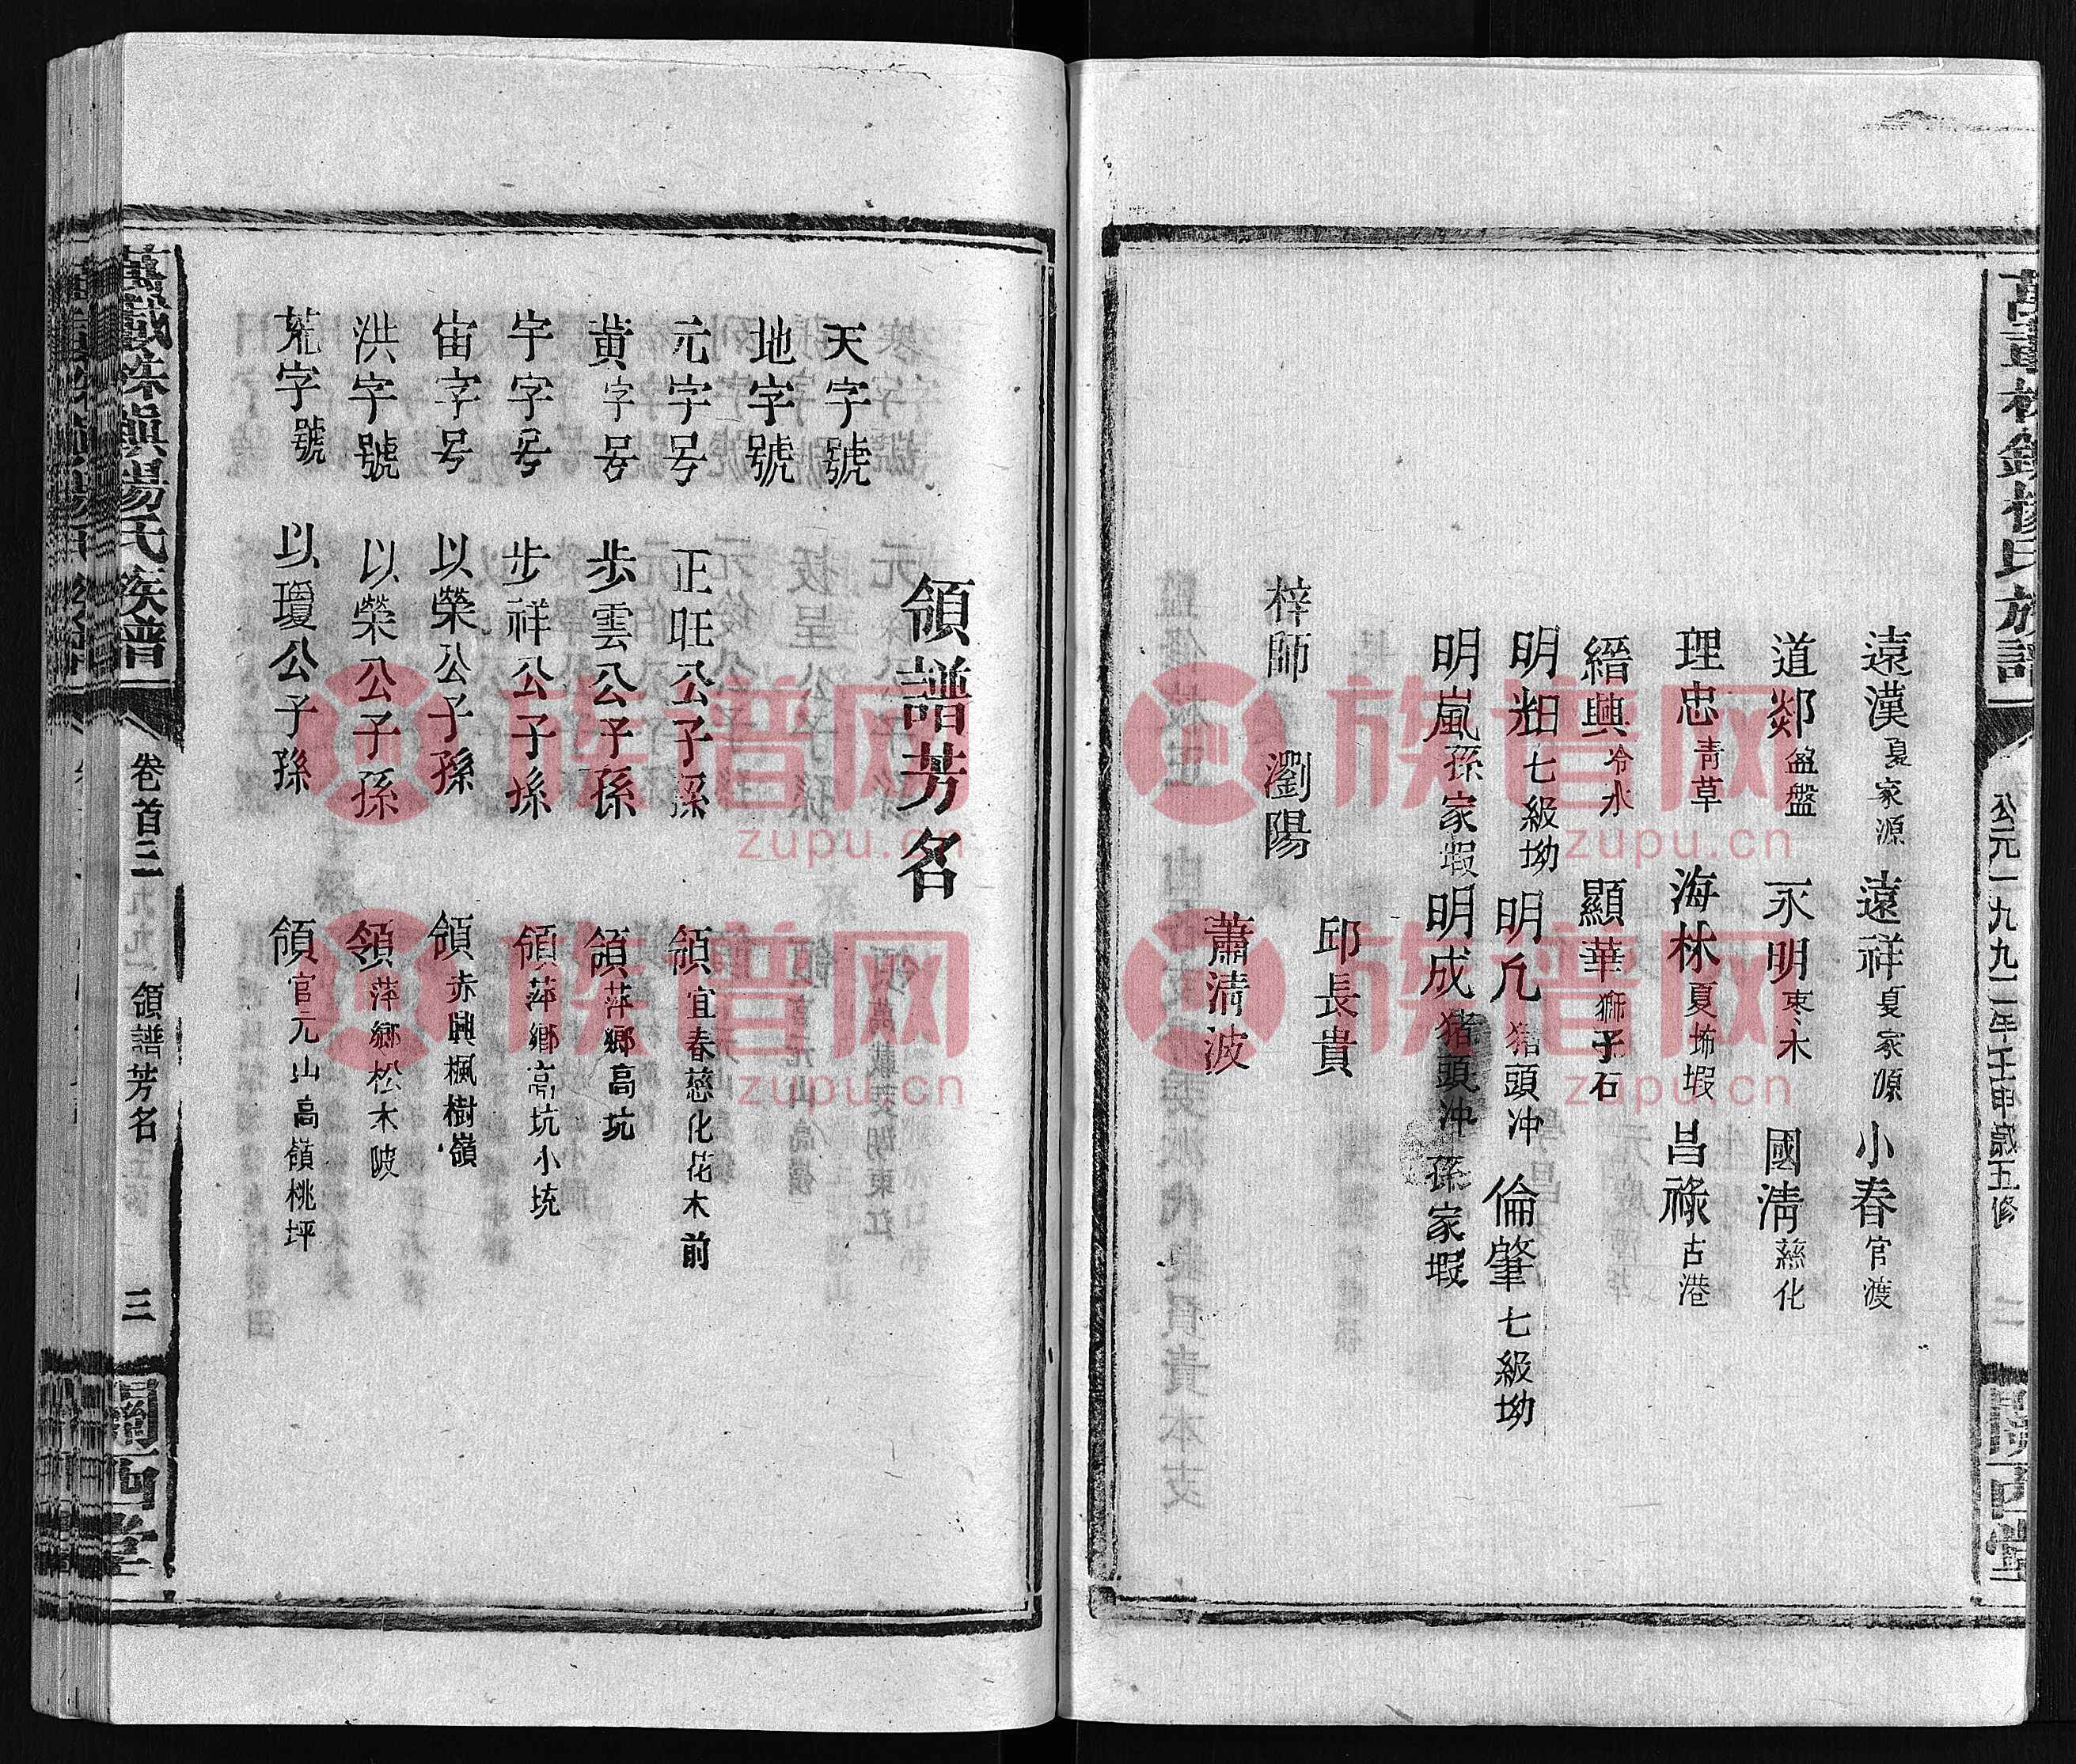 公元一九九二年壬申歲五修
二
遠漢 夏家源 遠祥 夏家源 小春 官渡
道鄰 盆盤 永明 枣木 國清 慈化
理忠 青草 海林 夏埗塅 昌祿 古港
縉興 冷水 顯華 獅子石
明 七級坳 明凢 猪頭冲 倫肇 七級坳
明嵐 孫家塅 明成 猪頭冲 孫家塅
邱長貴
梓師 瀏陽
蕭清波
領譜芳名
天字號
地字號
元字号 正旺公子孫 領 宜春慈化花木前
黃字号 步雲公子孫 領 萍鄉高坑
宇字号 步祥公子孫 領 萍鄉高坑小坑
宙字号 以榮公子孫 領 赤興楓樹嶺
洪字號 以榮公子孫 領 萍鄉松木陂
荒字號 以瓊公子孫 領 官元山高嶺桃坪
萬載 楊氏族譜
卷首三 領譜芳名
三
關西堂
族谱网
zupu.cn
族谱网
zupu.cn
族谱网
zupu.cn
族谱网
zupu.cn